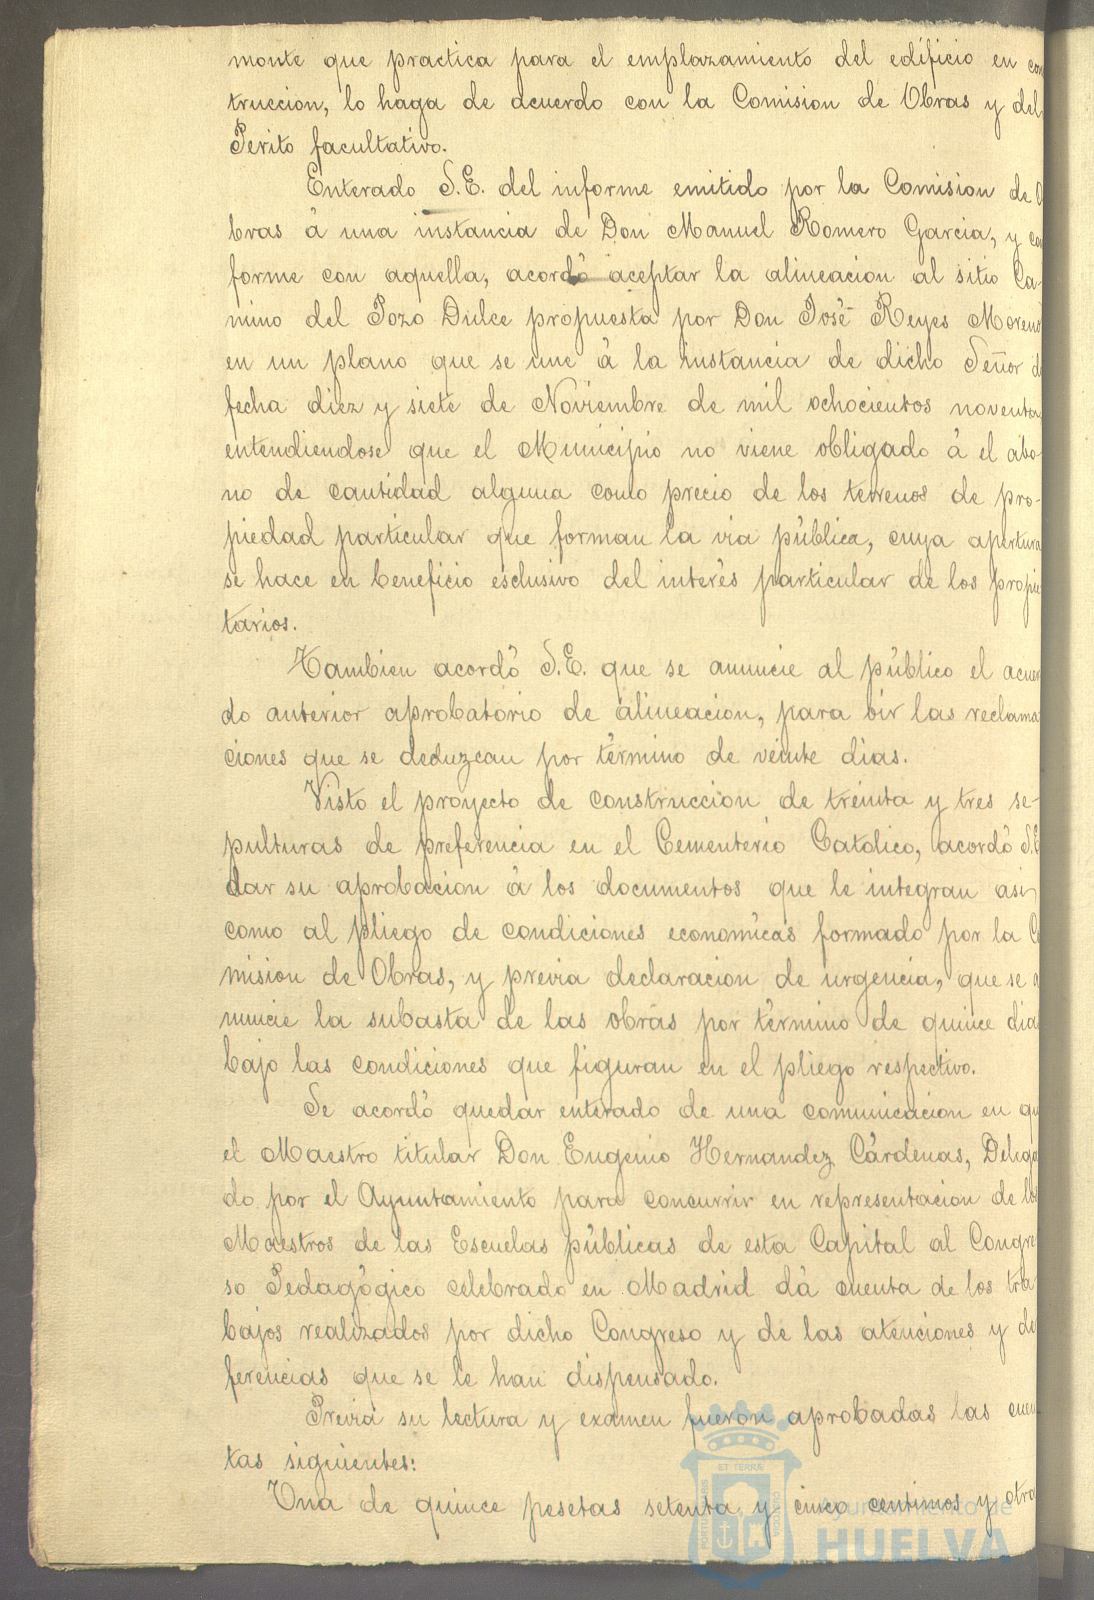 monte que practica para el emplazamiento del edificio en con
truccion, lo haga de acuerdo con la Comision de Obras y del
Perito facultativo.
Enterado S.E. del informe emitido por la Comision de O
bras á una instancia de Don Manuel Romero Garcia, y con
forme con aquella, acordó aceptar la alineacion al sitio Ca-
mino del Pozo Dulce propuesta por Don José Reyes Moreno
en un plano que se une á la instancia de dicho Señor de
fecha diez y siete de Noviembre de mil ochocientos noventa
entendiendose que el Municipio no viene obligado á el abo-
no de cantidad alguna como precio de los terrenos de pro-
piedad particular que forman la via pública, cuya apertura
se hace en beneficio esclusivo del interés particular de los propie
tarios.
Tambien acordó S.E. que se anuncie al público el acuer
do anterior aprobatorio de alineacion, para oir las reclama
ciones que se deduzcan por término de veinte dias.
Visto el proyecto de construccion de treinta y tres se-
pulturas de preferencia en el Cementerio Católico, acordó S.E
dar su aprobacion á los documentos que le integran asi
como al pliego de condiciones economicas formado por la Co
mision de Obras, y previa declaracion de urgencia, que se a
nuncie la subasta de las obras por término de quince dias
bajo las condiciones que figuran en el pliego respectivo.
Se acordó quedar enterado de una comunicacion en que
el Maestro titular Don Eugenio Hernandez Cárdenas, Delega
do por el Ayuntamiento para concurrir en representacion de los
Maestros de las Escuelas públicas de esta Capital al Congre
so Pedagógico celebrado en Madrid dá cuenta de los tra
bajos realizados por dicho Congreso y de las atenciones y de
ferencias que se le han dispensado.
Previa su lectura y examen fueron aprobadas las cuen
tas siguientes:
Una de quince pesetas setenta y cinco centimos y otra
ET TERRÆ
PORTUS MARIS
CUSTODIA
Ayuntamiento de
HUELVA